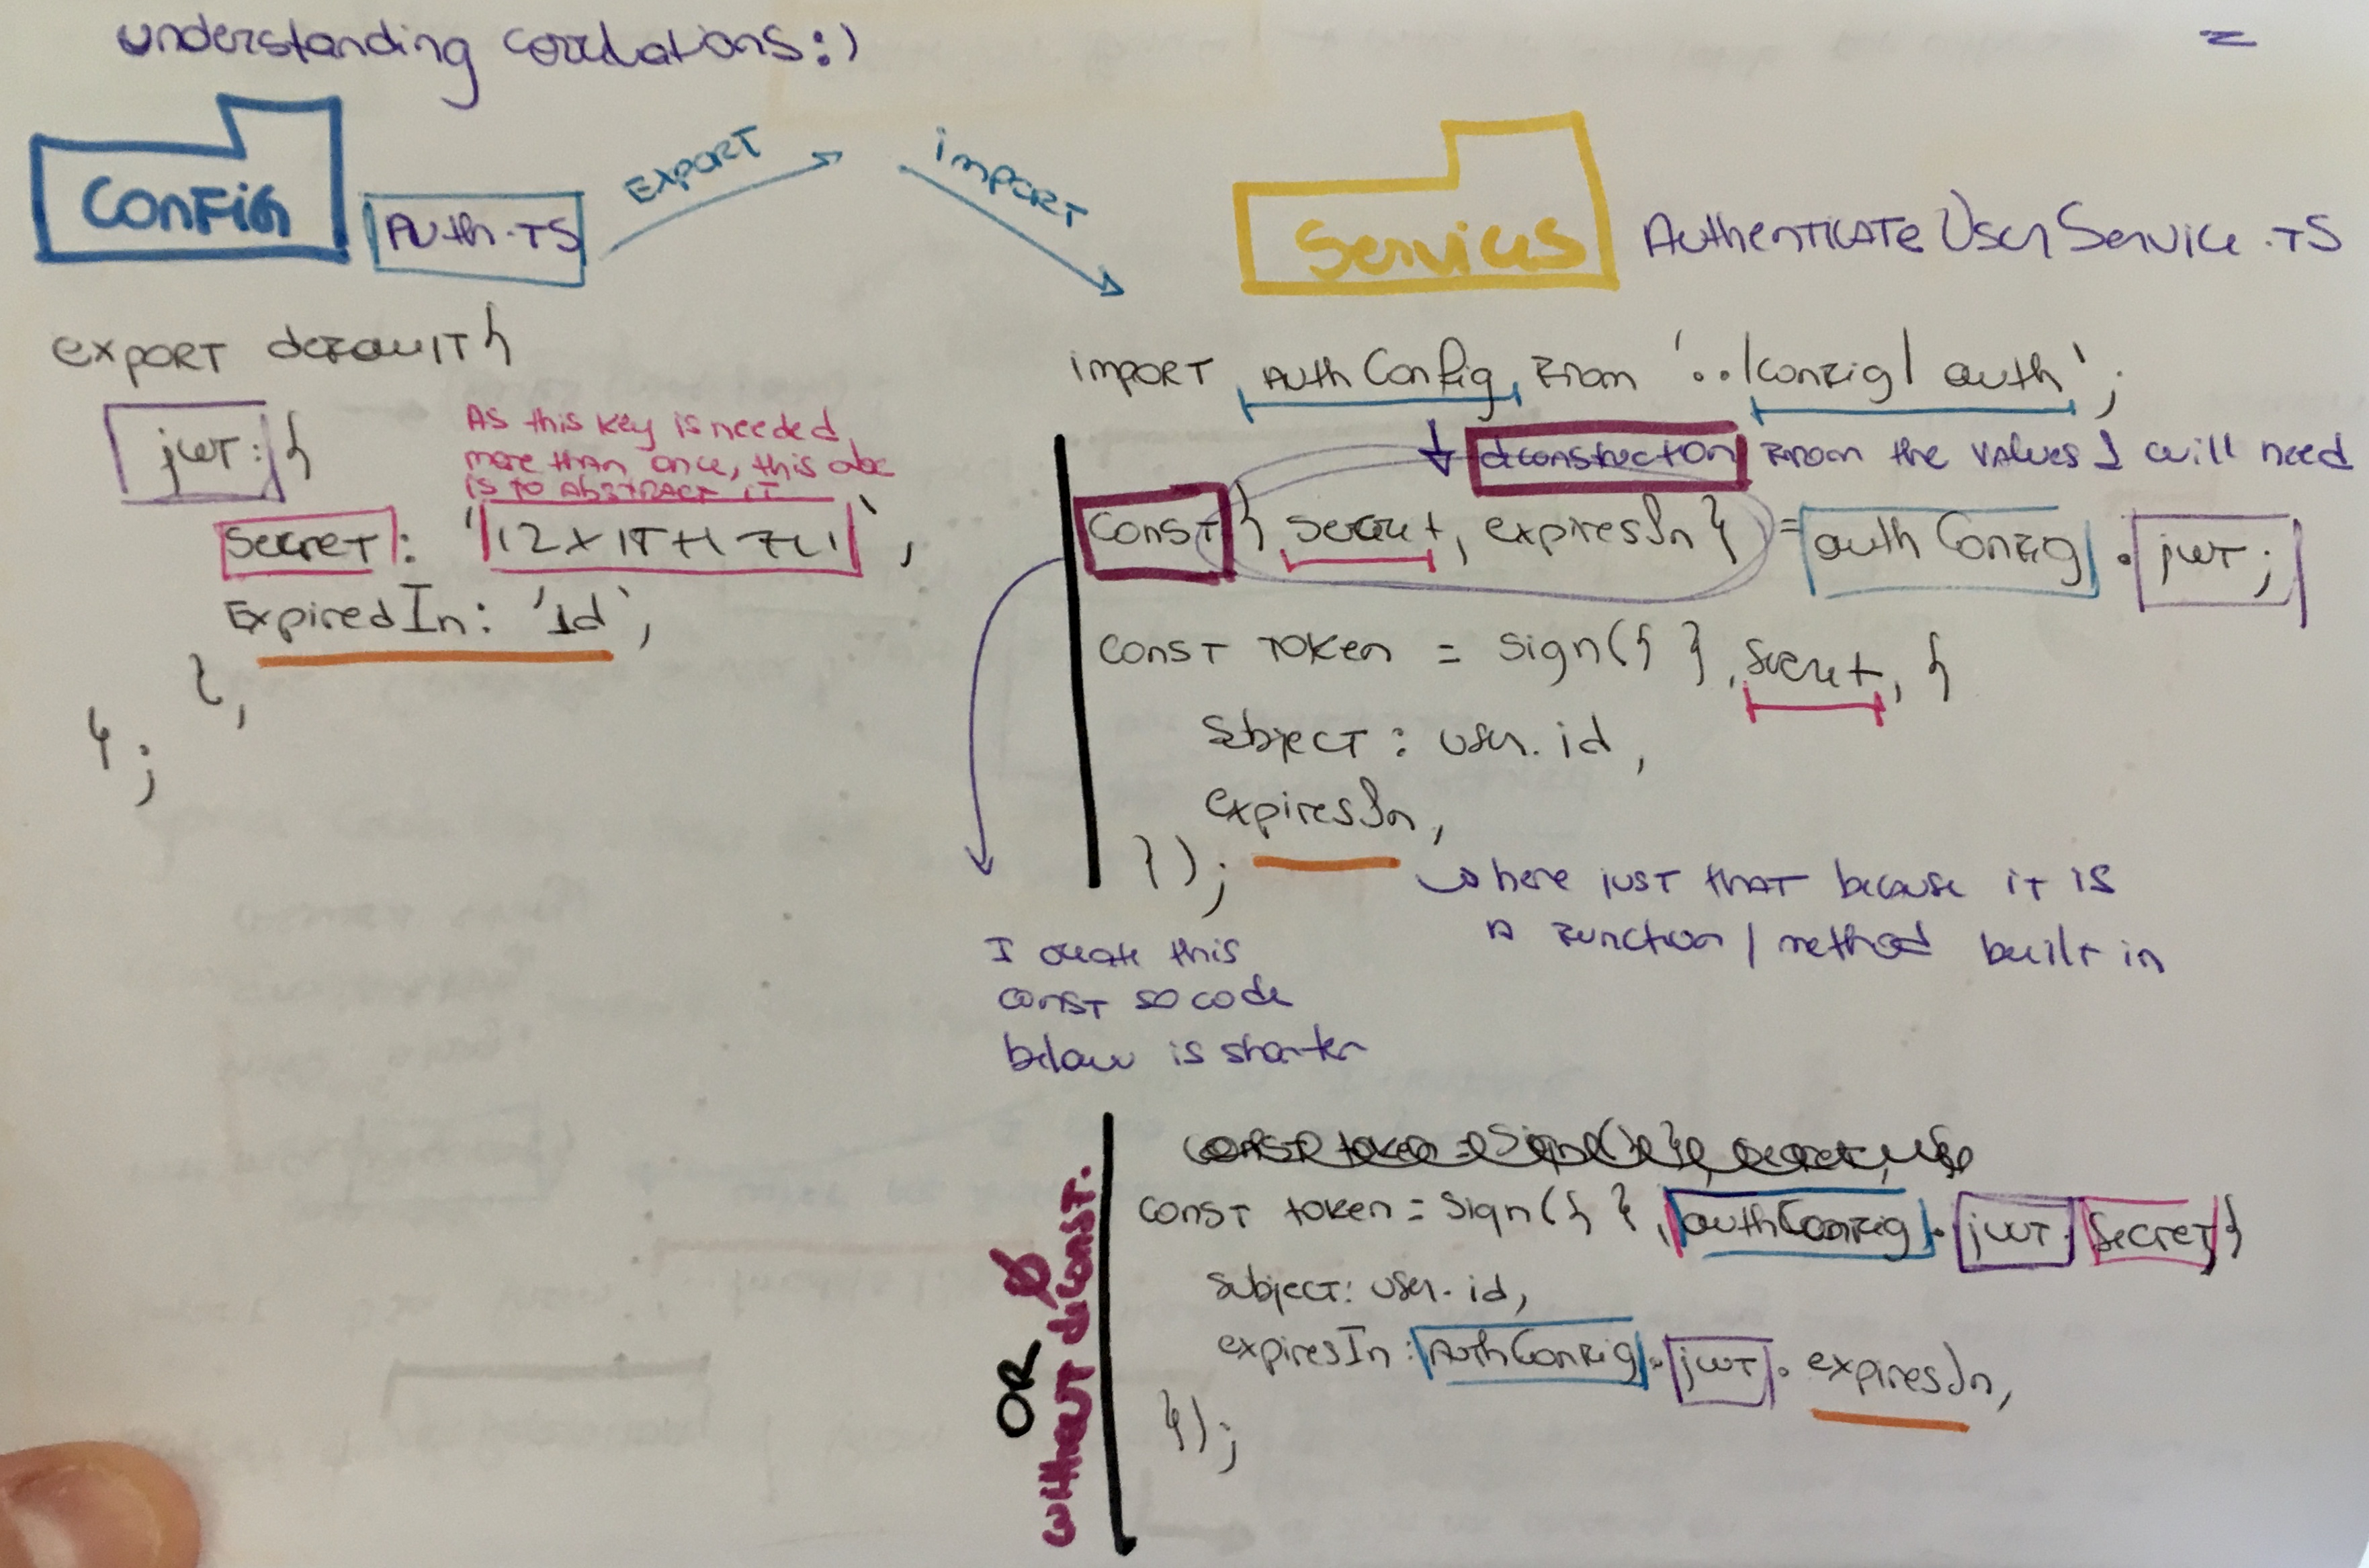 understanding correlations:)
Config
Auth.TS
EXPORT
import
Services
AuthenticateUserService.TS
export default {
jwt: {
As this key is needed
more than once, this abc
is to abstract it
Secret: '
',
ExpiredIn: '1d',
},
};
import AuthConfig from '../config/auth';
deconstruction from the values I will need
const { secret, expiresIn } = authConfig.jwt;
const token = sign({ }, secret, {
subject: user.id,
expiresIn,
});
here just that because it is
a function/method built in
I create this
const so code
below is shorter
OR
without deconst.
const token = sign({ }, secret, {
const token = sign({ }, authConfig.jwt.secret, {
subject: user.id,
expiresIn: AuthConfig.jwt.expiresIn,
});